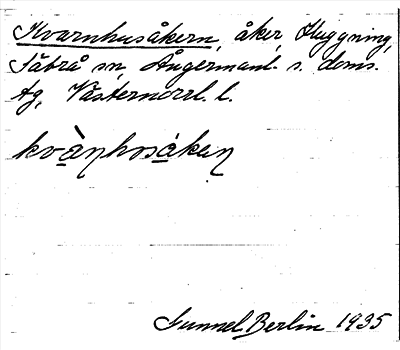 Kvarnhusåkern, åker, Huggning,
Säbrå sn, Ångermanl. s. doms.
tg, Västernorrl. l.
kvànhusákeɳ
Gunnel Berlin 1935